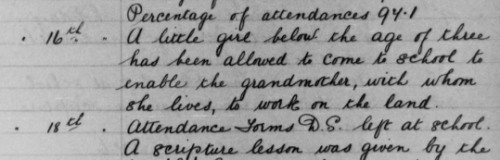 Percentage of attendances 94.1
. 16th . A little girl below the age of three
has been allowed to come to school to
enable the grandmother, with whom
she lives, to work on the land.
. 18th . Attendance Forms D.S. left at school.
A scripture lesson was given by the